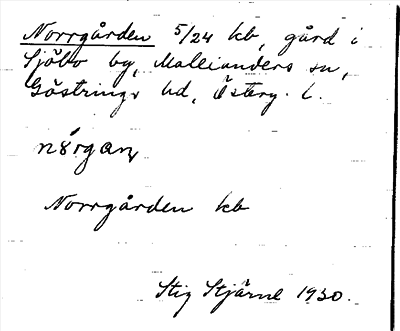 Norrgården 5/24 kb, gård i
Sjöbo by, Malexanders sn,
Göstrings hd, Österg. l.
Norrgården kb
Stig Stjärne 1930.